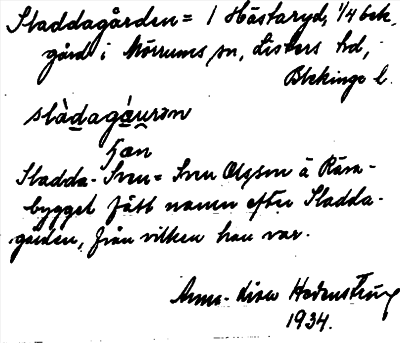 Sladdagården = 1 Hästaryd, 1/4 bek.
gård i Mörrums sn, Listers hd,
Blekinge l.
slàdagá̱u̮rən
han
Sladda-Sven = Sven Olsson å Räva-
bygget fått namn efter Sladda-
gården, från vilken han var.
Anna-Lisa Hedenström
1934.